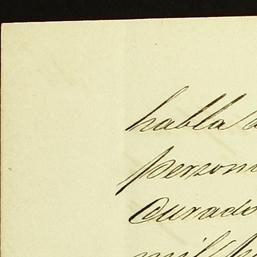 habla
person
Curado
mil